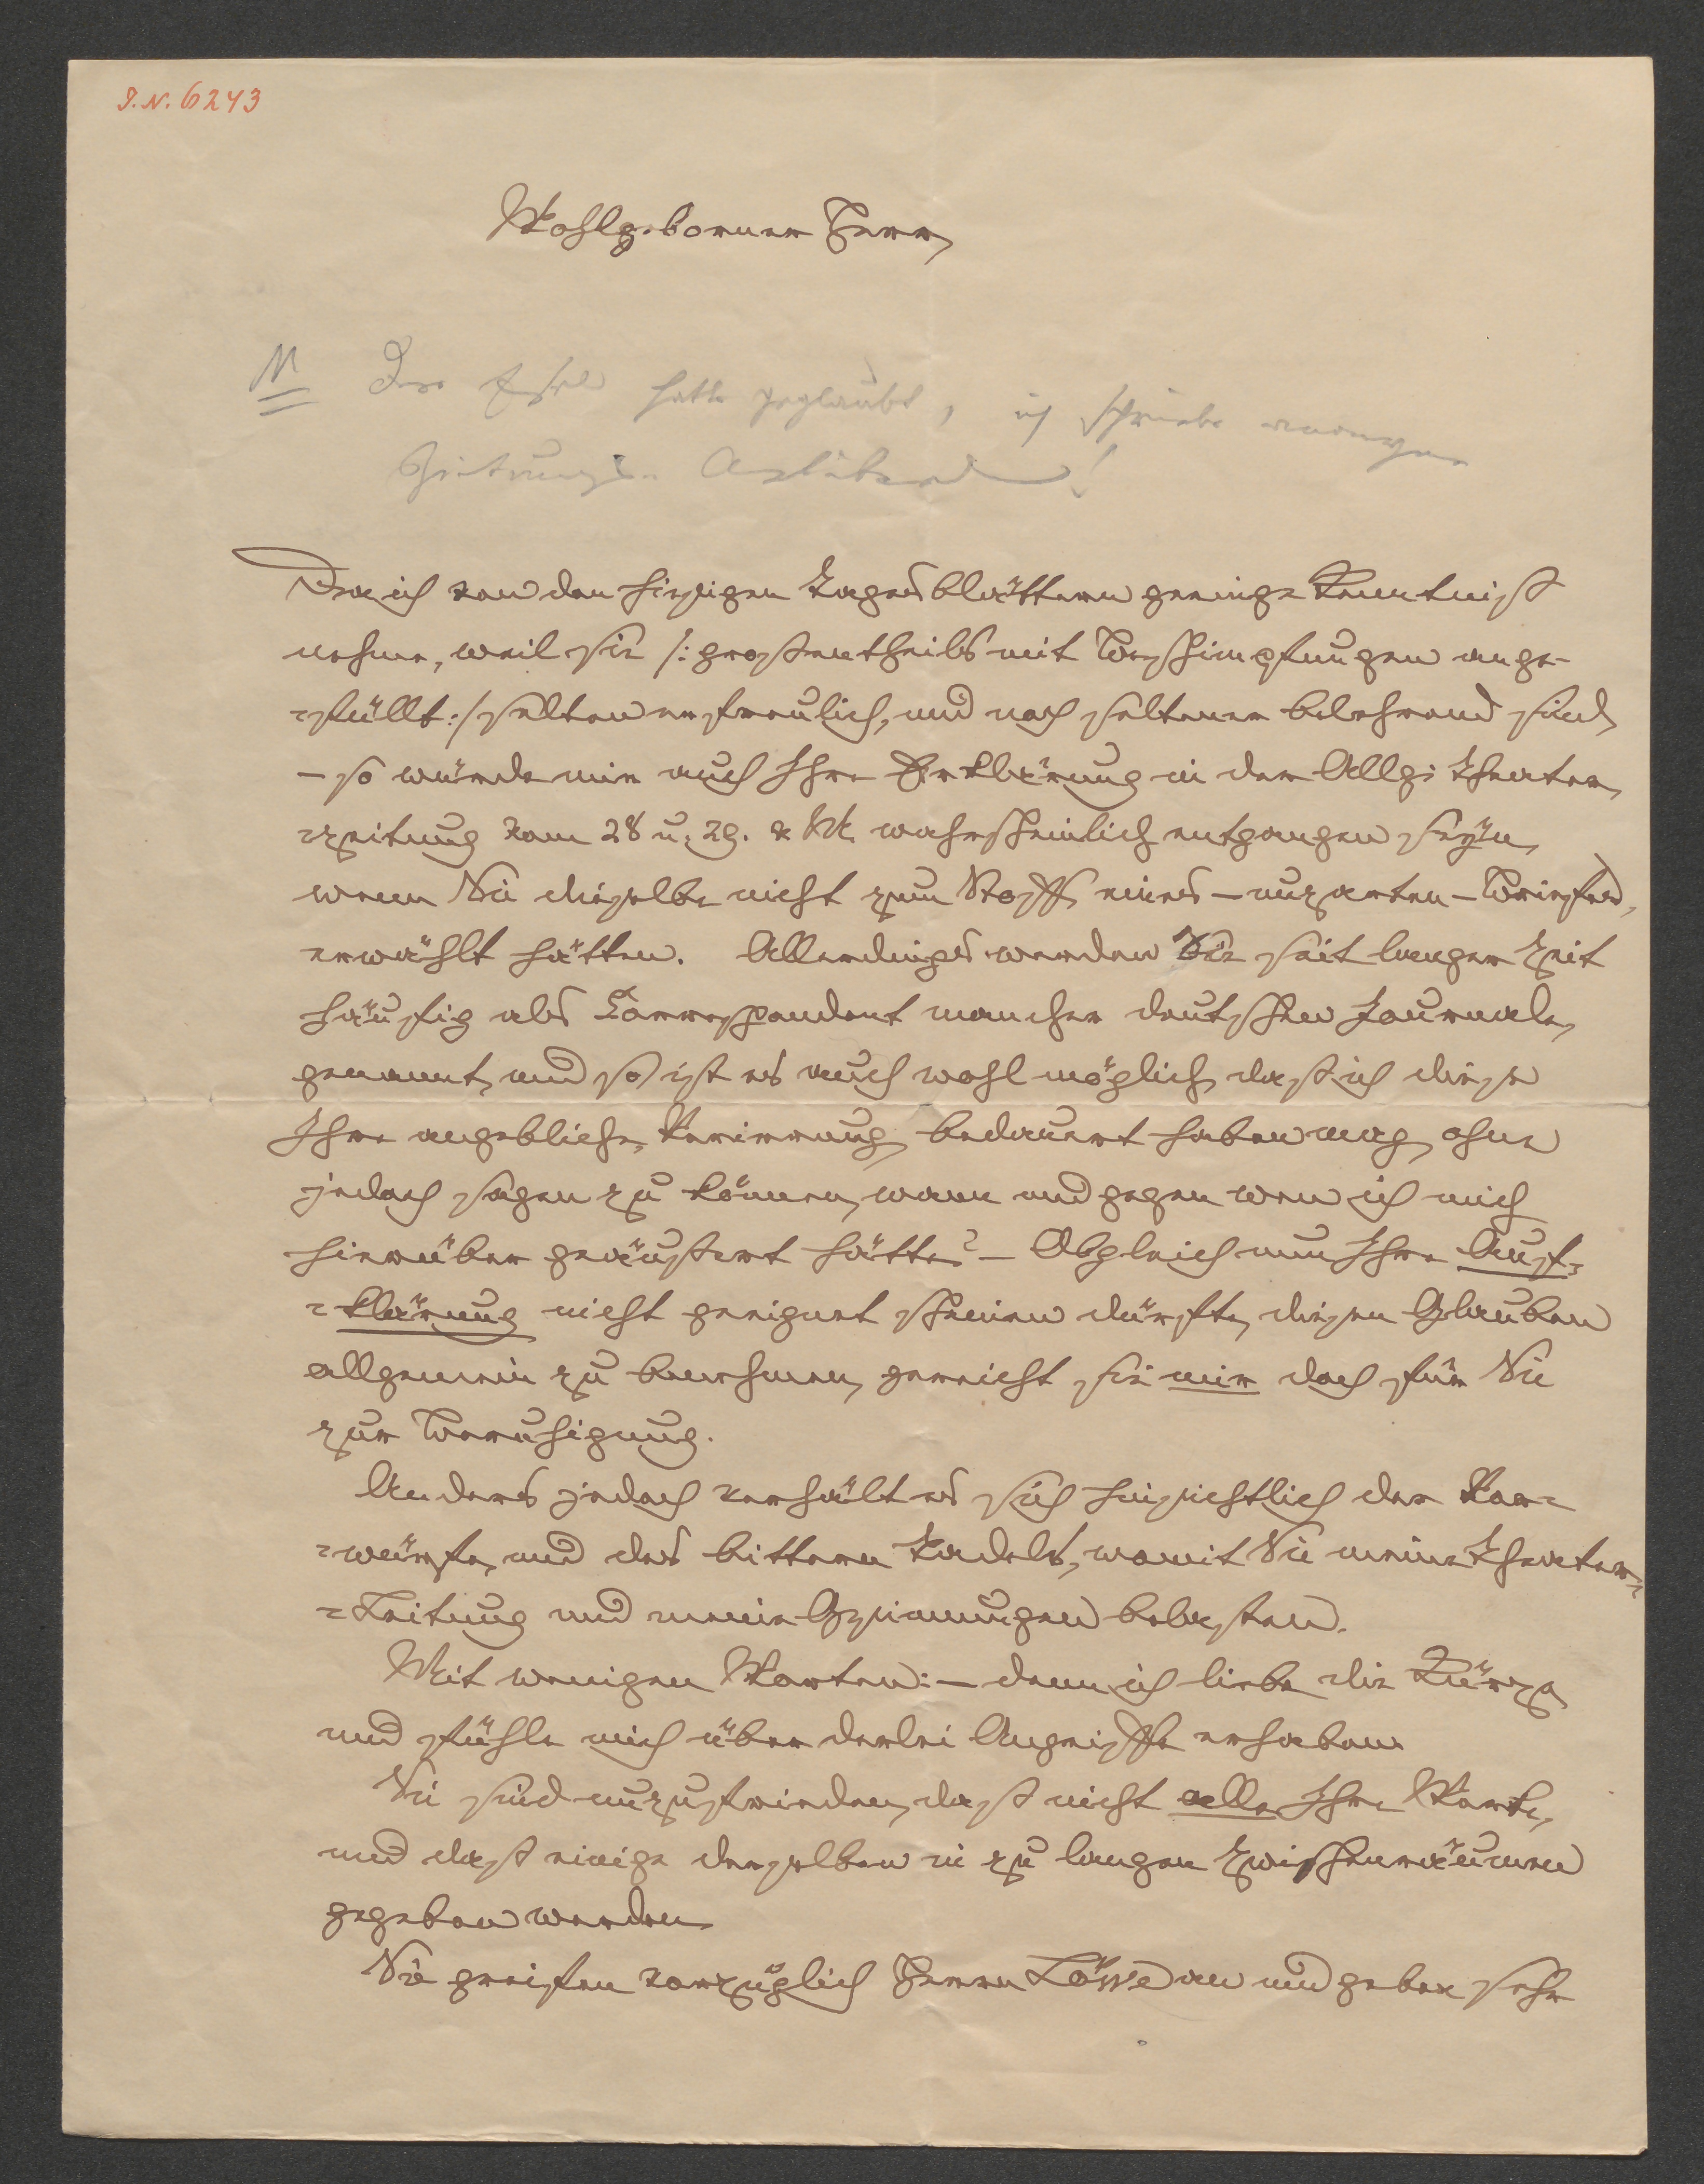 I.N. 6243
Wohlgeborner Herr,
NB Der Esel hatte geglaubt, ich schriebe anonyme
Zeitungs-Artikeln!
Da ich von den hiesigen Tagesblättern geringe Kenntniß
nehme, weil sie /: großentheils mit Beschimpfungen ange-
=füllt :/ selten erfreulich, und noch seltener belehrend sind,
– so würde mir auch Ihre Erklärung in der Allg: Theater
=zeitung vom 28 u. 29. v. M. wahrscheinlich entgangen seyn,
wenn Sie dieselbe nicht zum Stoffe eines – unzarten – Briefes,
erwählt hätten. Allerdings werden Sie seit langer Zeit
häufig als Correspondent mancher deutschen Journale,
genannt, und so ist es auch wohl möglich, daß ich diese
Ihre angebliche Verirrung bedauert haben mag, ohne
jedoch sagen zu können, wann und gegen wen ich mich
hierüber geäußert hätte? – Obgleich nun Ihre Auf=
=klärung nicht geeignet scheinen dürfte, diesen Glauben
allgemein zu benehmen, gereicht sie mir doch für Sie
zur Beruhigung.
Anders jedoch verhält es sich hinsichtlich der Vor=
=würfe, und des bittern Tadels, womit Sie meine Theater=
=Leitung und meine Gesinnungen belasten.
Mit wenigen Worten: – denn ich liebe die Kürze,
und fühle mich über derlei Angriffe erhaben.
Sie sind unzufrieden, daß nicht alle Ihre Werke,
und daß einige derselben in zu langen Zwischenräumen
gegeben werden.
Sie greifen vorzüglich Herrn Löwe an und geben sehr